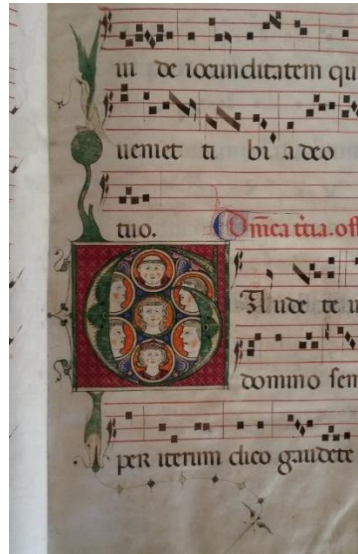 ui de iocunditatem qu
ueniet ti bi a deo
tuo. Dñica t̃cia. off
GAude te i
domino sem
per iterum dico gaudete